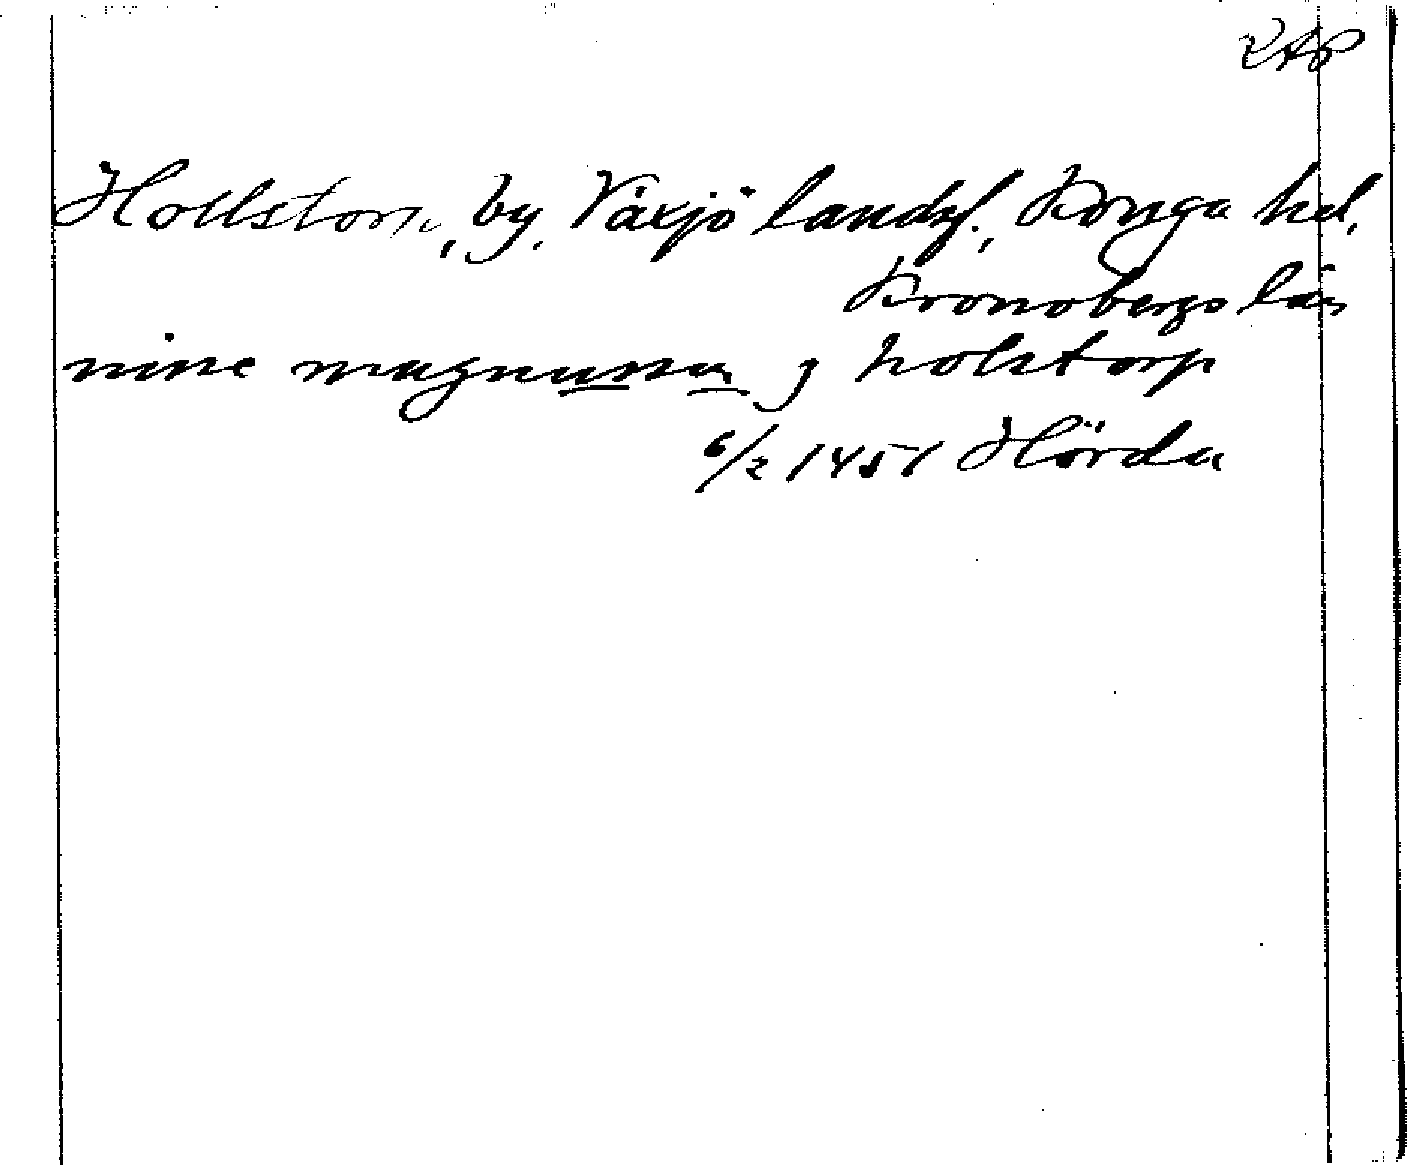 RAP
Hollstorp, by, Växjö landsf., Konga hd,
Kronobergs län
nisse magnusson j holstorp
6/2 1451 Hörda